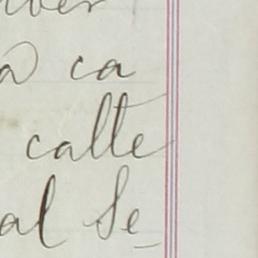 a ca
calle
al Se_